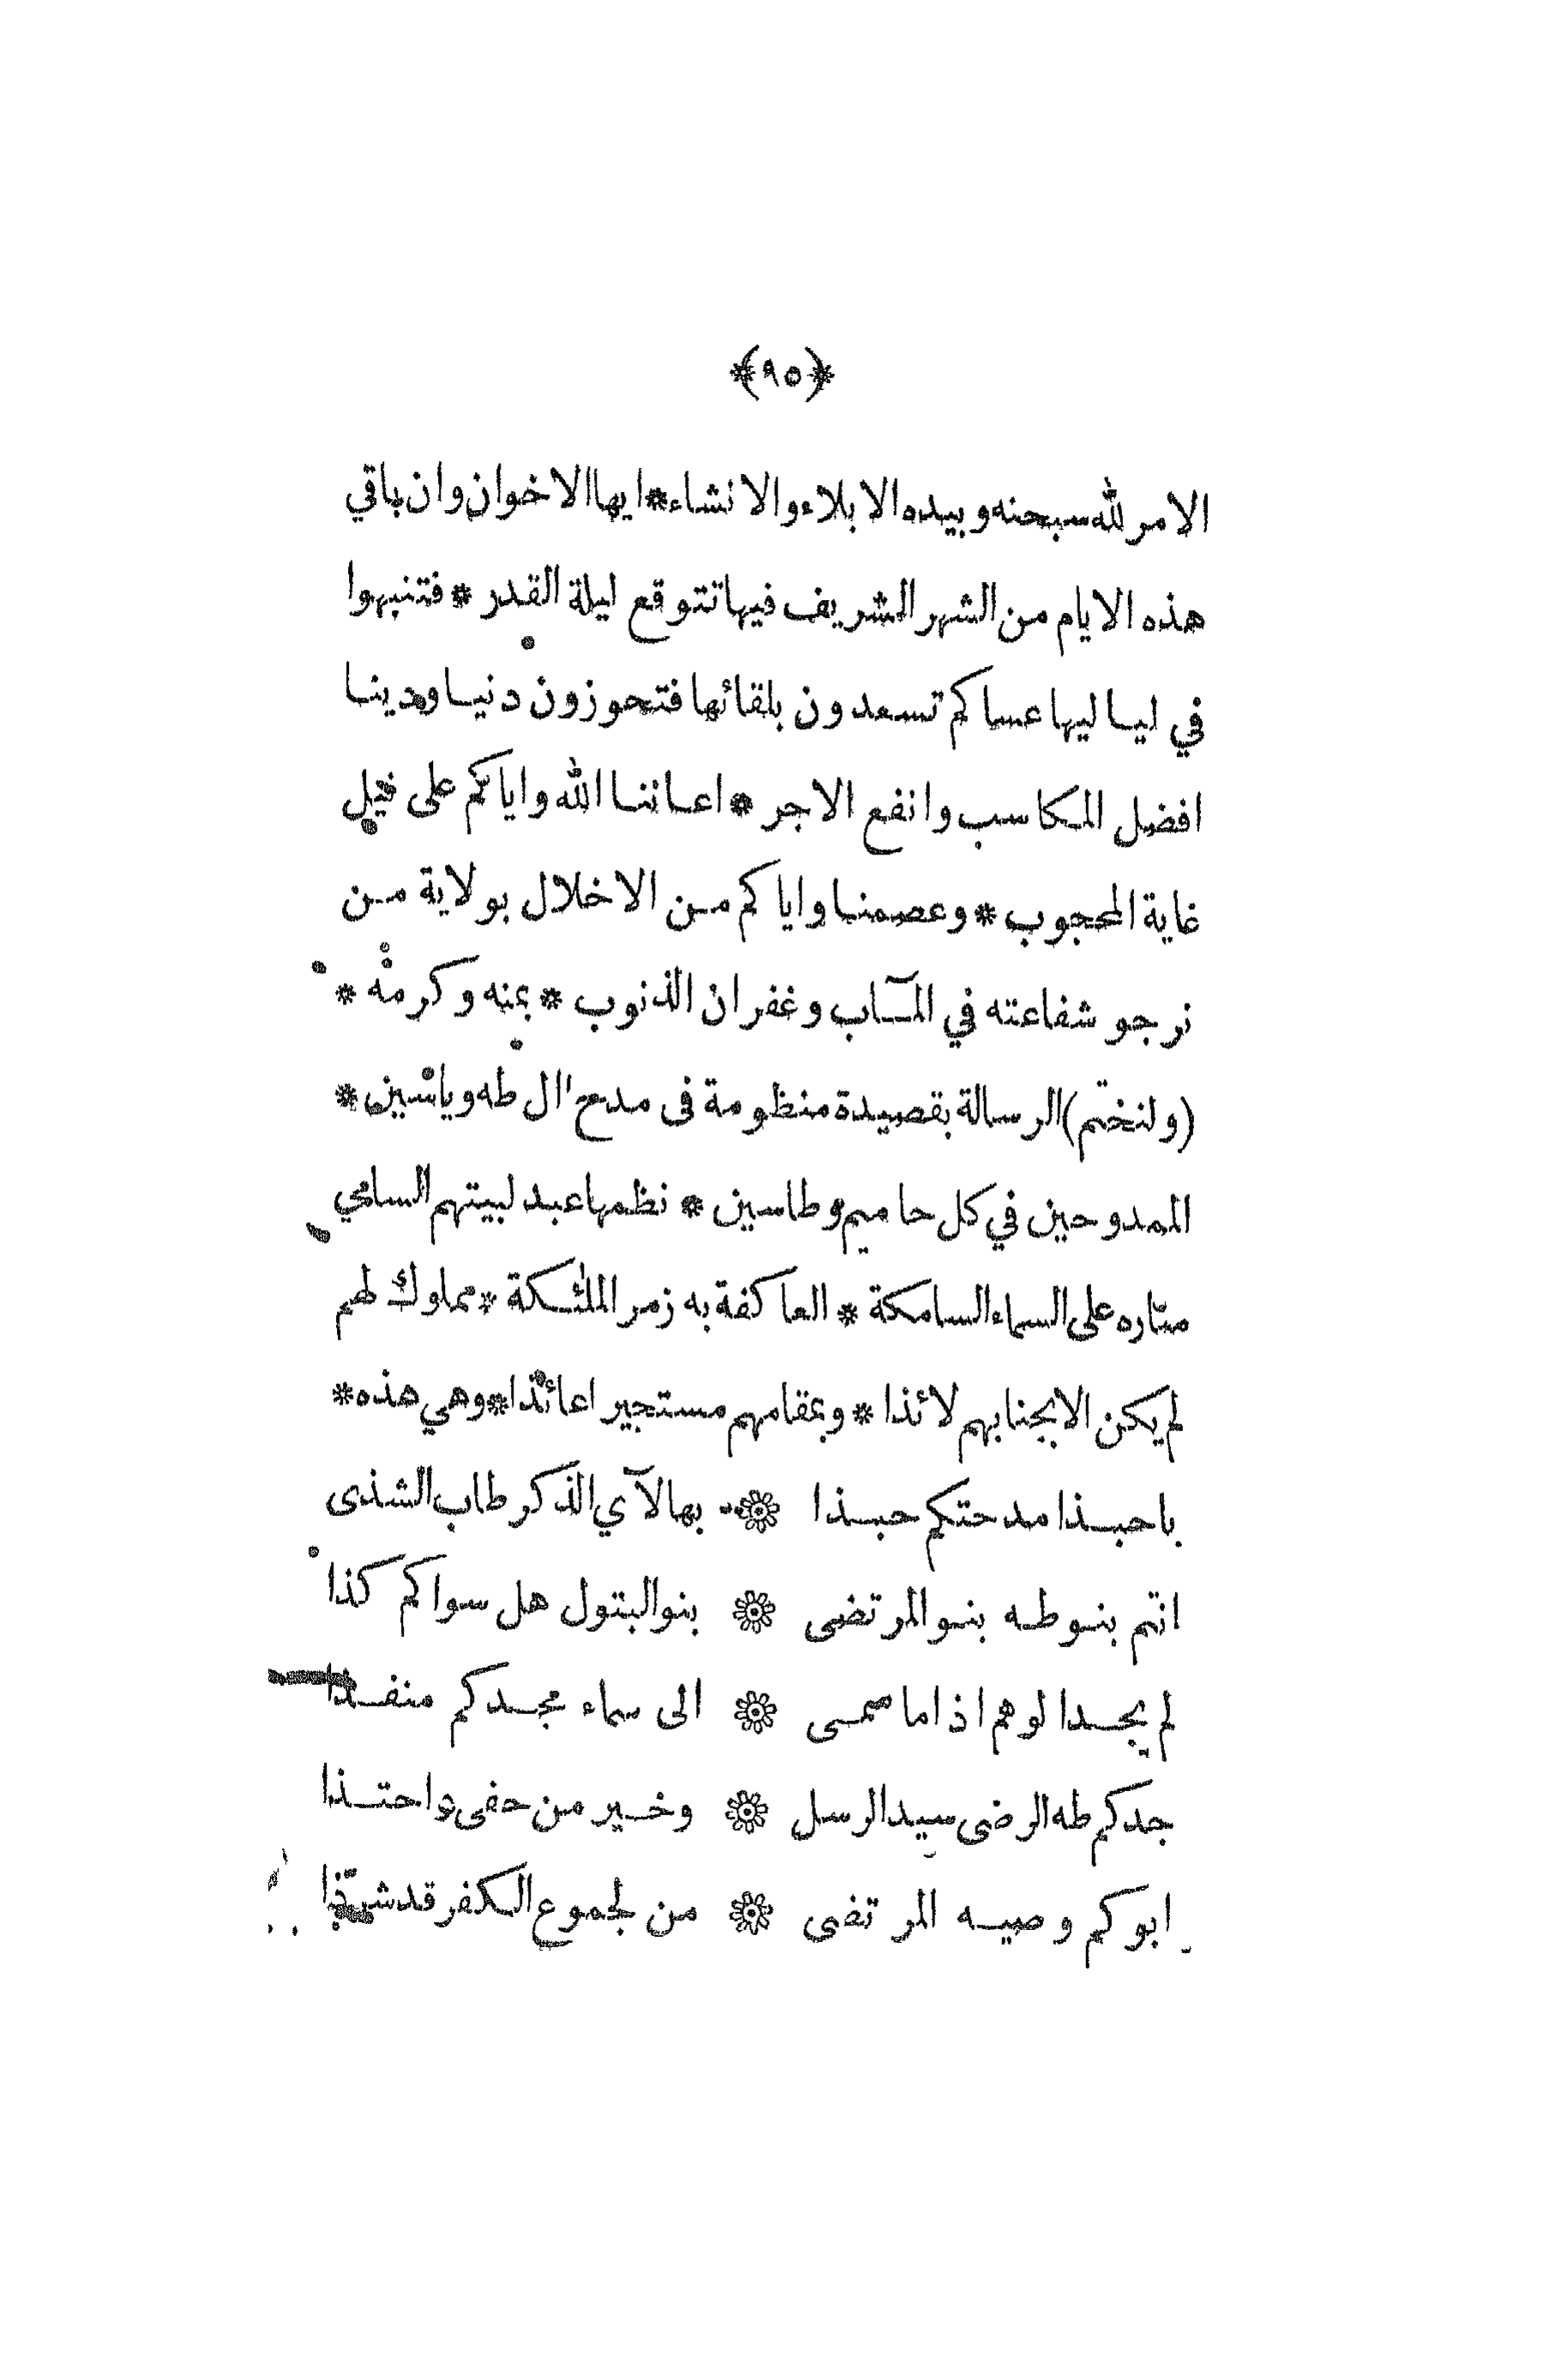 ﴿٩٥﴾
الامر لله سبحنه وبيده الابلاء والانشاء * ايها الاخوان وان باقي
هذه الايام من الشهر الشريف فيها تتوقع ليلة القدر * فتنبهوا
في لياليها عساكم تسعدون بلقائها فتحوزون دنيا ودينا
افضل المكاسب وانفع الاجر * اعاننا الله واياكم على
غاية المحجوب * وعصمنا واياكم من الاخلال بولاية من
نرجو شفاعته في المآب وغفران الذنوب * بمنه وكرمه *
(ولنختم) الرسالة بقصيدة منظومة فى مدح ال طه وياسين *
الممدوحين في كل حاميم وطاسين * نظمها عبد لبيتهم السامي
مناره على السماء السامكة * العاكفة به زمر الملئكة * مملوك لهم
لم يكن الا بجنابهم لائذا * وبمقامهم مستجيرا عائذا * وهي هذه *
ياحبذا مدحتكم حبذا ۞ بها لآي الذكر طاب الشذى
انتم بنو طه بنو المرتضى ۞ بنو البتول هل سواكم كذا
لم يجد الوهم اذا ما سمى ۞ الى سماء مجدكم منفذا
جدكم طه الرضى سيد الرسل ۞ وخير من حفى واحتذا
ابوكم وصيه المرتضى ۞ من لجموع الكفر قد شرذا